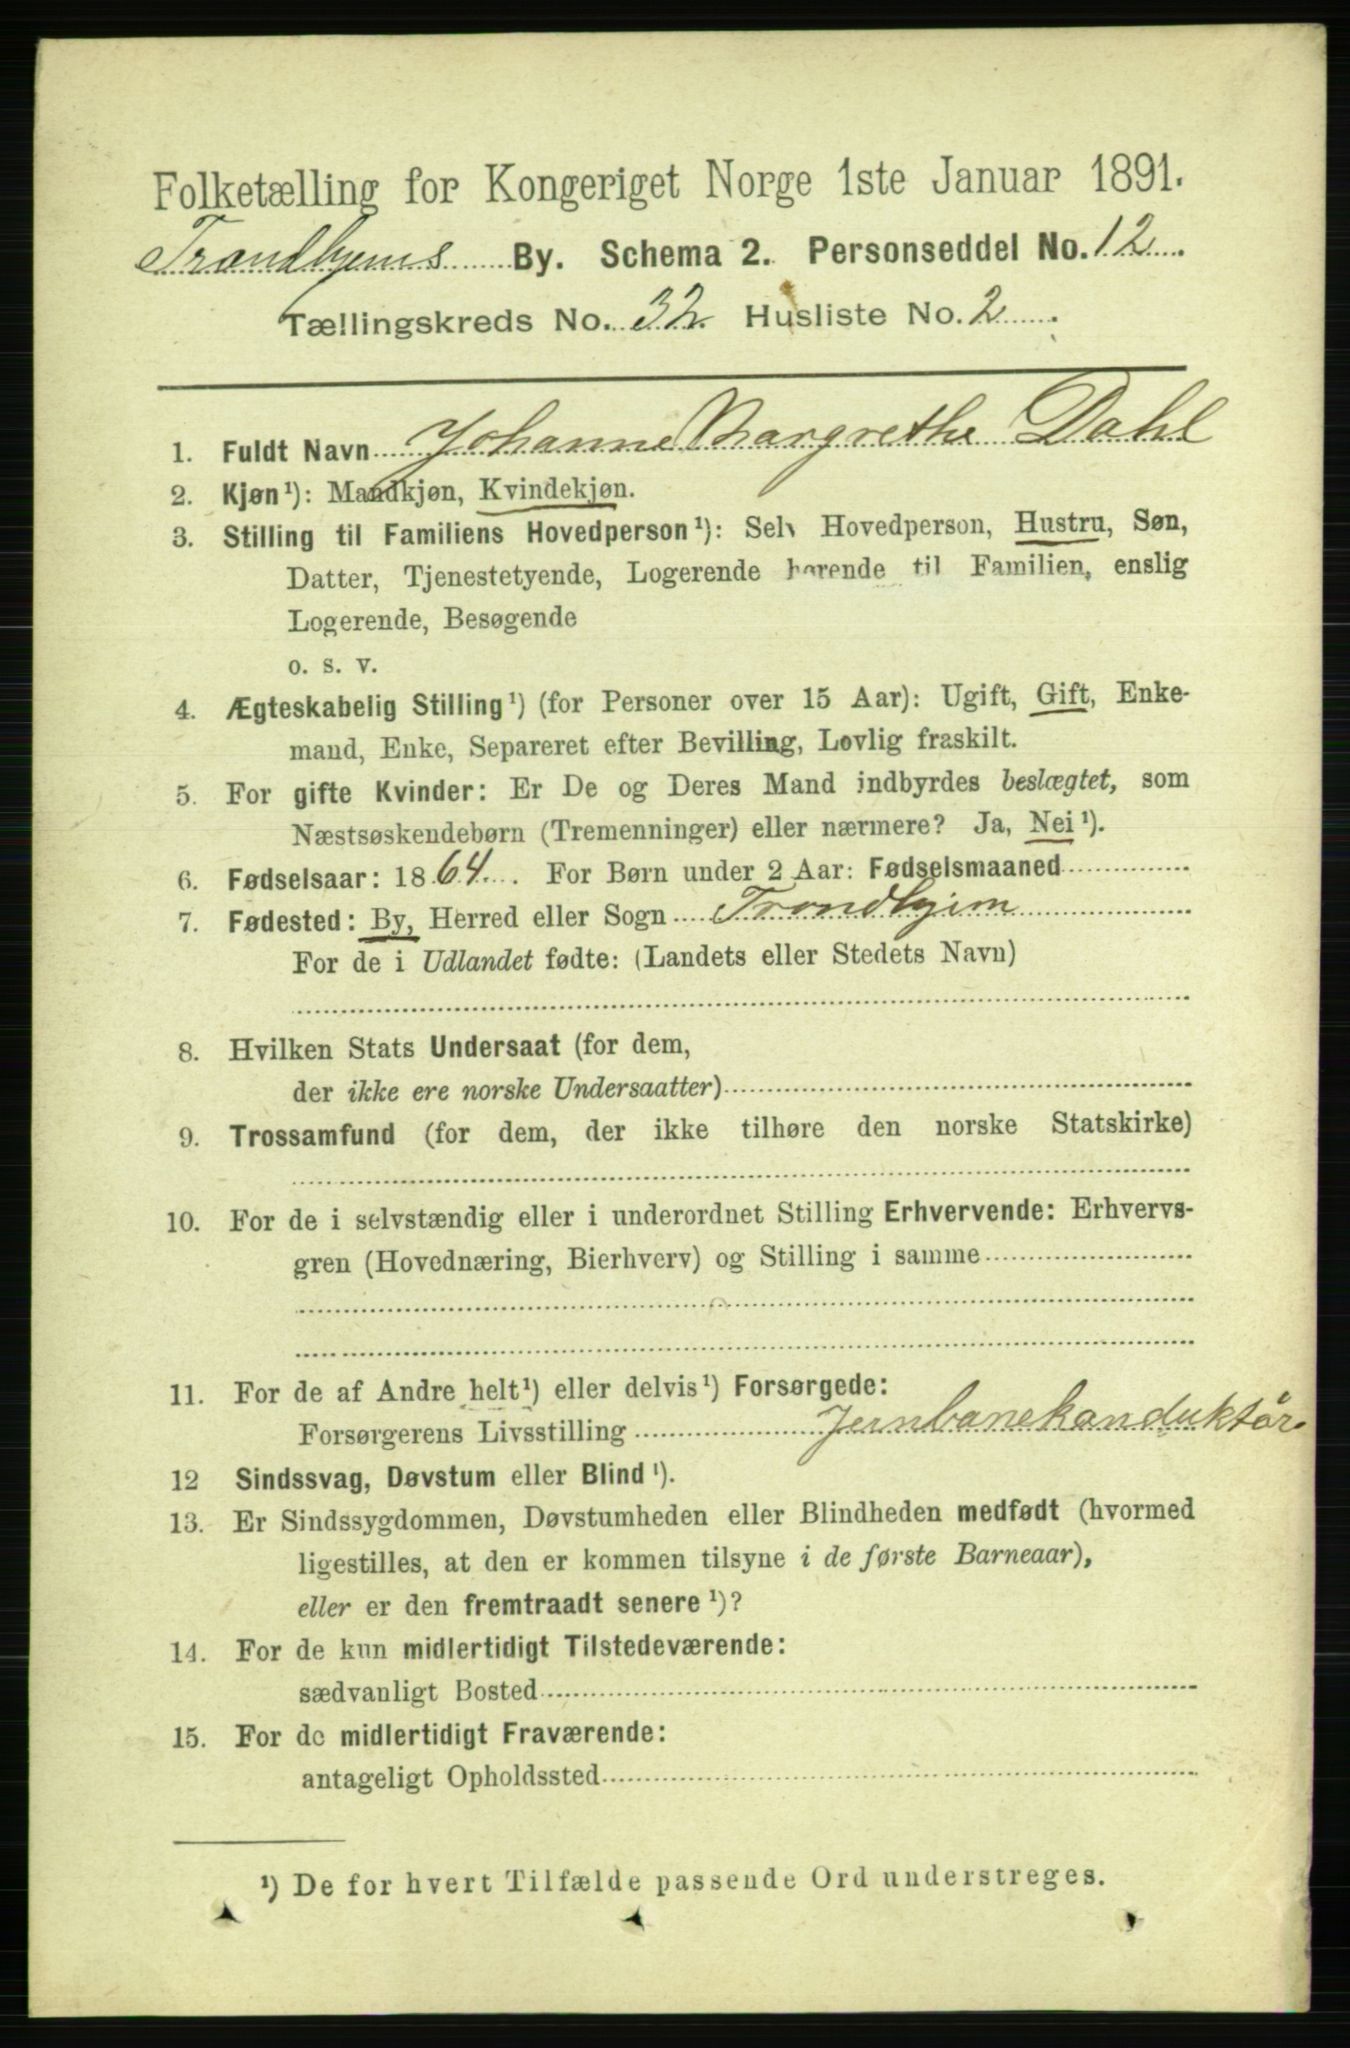 Folketælling for Kongeriget Norge 1ste Januar 1891.
Trondhjems By. Schema 2. Personseddel No. 12
Tællingskreds No. 32. Husliste No. 2
1. Fuldt Navn Johanne Margrethe Dahl
2. Kjøn¹): Mandkjøn, Kvindekjøn.
3. Stilling til Familiens Hovedperson¹): Selv Hovedperson, Hustru, Søn,
Datter, Tjenestetyende, Logerende hørende til Familien, enslig
Logerende, Besøgende
o. s. v.
4. Ægteskabelig Stilling¹) (for Personer over 15 Aar): Ugift, Gift, Enke-
mand, Enke, Separeret efter Bevilling, Lovlig fraskilt.
5. For gifte Kvinder: Er De og Deres Mand indbyrdes beslægtet, som
Næstsøskendebørn (Tremenninger) eller nærmere? Ja, Nei¹).
6. Fødselsaar: 1864. For Børn under 2 Aar: Fødselsmaaned
7. Fødested: By, Herred eller Sogn Trondhjem
For de i Udlandet fødte: (Landets eller Stedets Navn)
8. Hvilken Stats Undersaat (for dem,
der ikke ere norske Undersaatter)
9. Trossamfund (for dem, der ikke tilhøre den norske Statskirke)
10. For de i selvstændig eller i underordnet Stilling Erhvervende: Erhvervs-
gren (Hovednæring, Bierhverv) og Stilling i samme
11. For de af Andre helt¹) eller delvis¹) Forsørgede:
Forsørgerens Livsstilling Jernbanekonduktör
12 Sindssvag, Døvstum eller Blind¹).
13. Er Sindssygdommen, Døvstumheden eller Blindheden medfødt (hvormed
ligestilles, at den er kommen tilsyne i de første Barneaar),
eller er den fremtraadt senere¹)?
14. For de kun midlertidigt Tilstedeværende:
sædvanligt Bosted
15. For de midlertidigt Fraværende:
antageligt Opholdssted
¹) De for hvert Tilfælde passende Ord understreges.